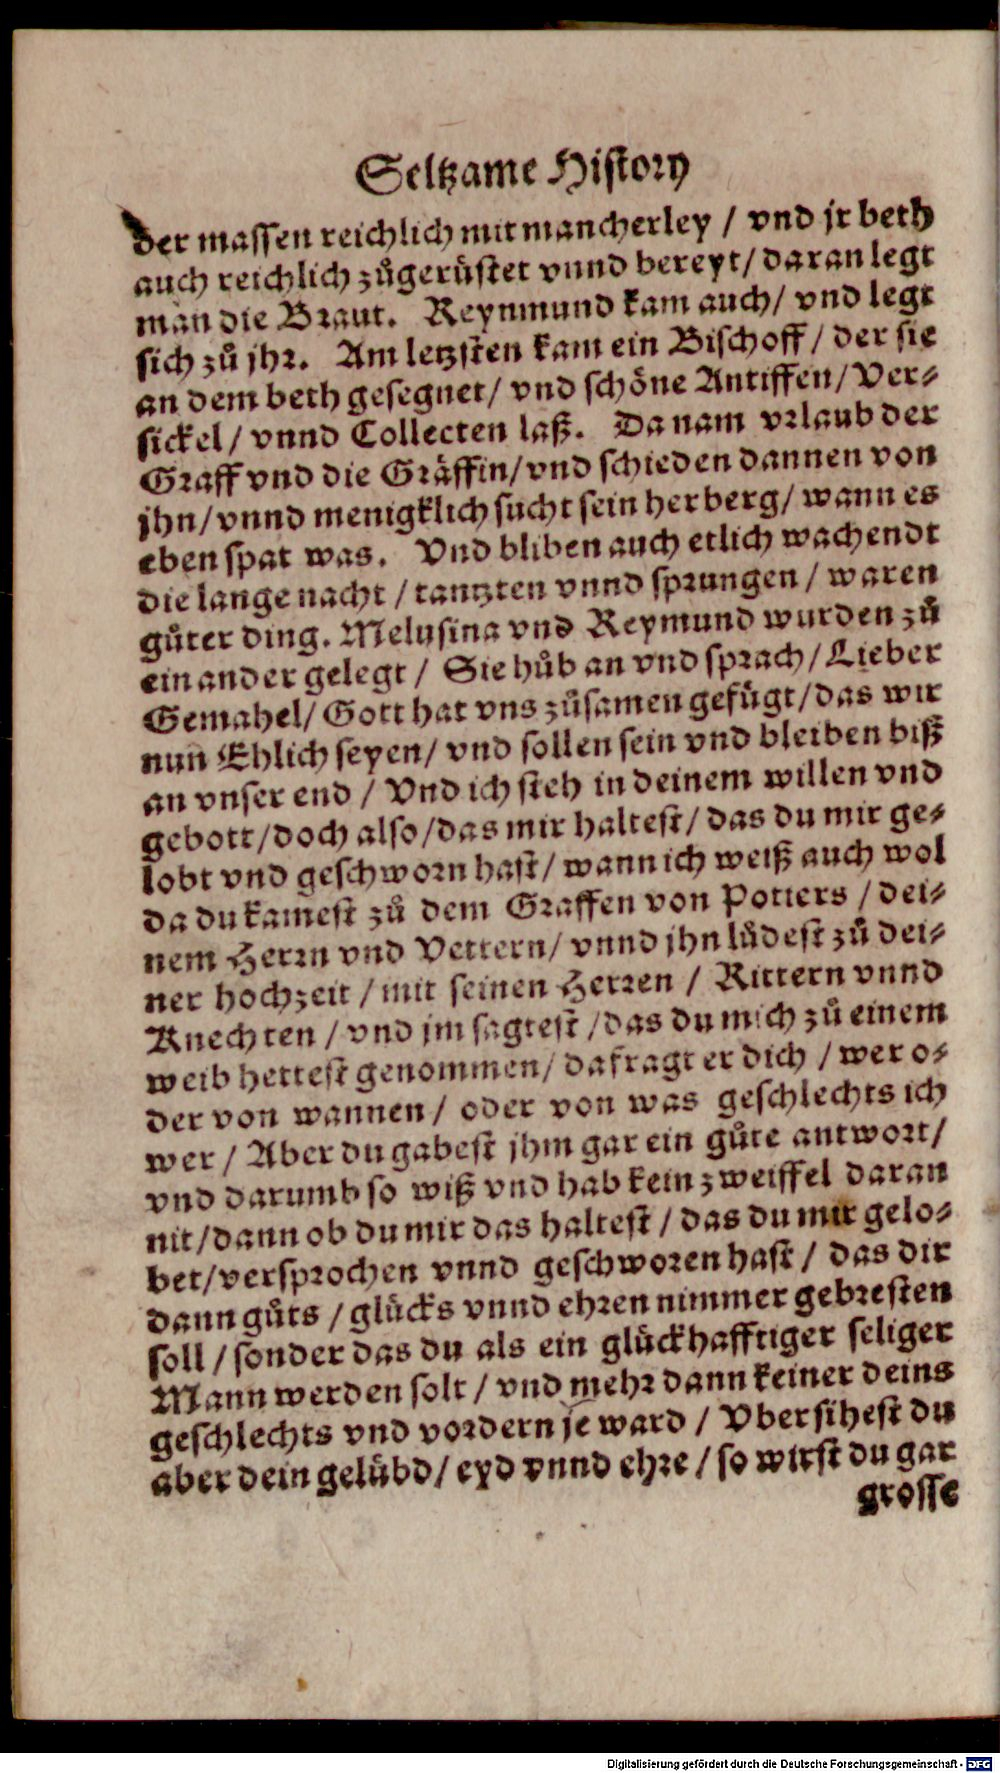 Seltzame History
der massen reichlich mit mancherley / vnd jr beth
auch reichlich zůgerüstet vnnd bereyt / daran legt
man die Braut. Reynmund kam auch / vnd legt
sich zů jhr. Am letzsten kam ein Bischoff / der sie
an dem beth gesegnet / vnd schöne Antiffen / Ver-
sickel / vnnd Collecten laß. Da nam vrlaub der
Graff vnd die Gräffin / vnd schieden dannen von
jhn / vnnd menigklich sucht sein herberg / wann es
eben spat was. Vnd bliben auch etlich wachendt
die lange nacht / tantzten vnnd sprungen / waren
gůter ding. Melusina vnd Reymund wurden zů
einander gelegt / Sie hůb an vnd sprach / Lieber
Gemahel / Gott hat vns zůsamen gefügt / das wir
nun Ehlich seyen / vnd sollen sein vnd bleiben biß
an vnser end / Vnd ich steh in deinem willen vnd
gebott / doch also / das mir haltest / das du mir ge-
lobt vnd geschworn hast / wann ich weiß auch wol
da du kamest zů dem Graffen von Potiers / dei-
nem Herrn vnd Vettern / vnnd jhn lůdest zů dei-
ner hochzeit / mit seinen Herren / Rittern vnnd
Knechten / vnd jm sagtest / das du mich zů einem
weib hettest genommen / da fragt er dich / wer o-
der von wannen / oder von was geschlechts ich
wer / Aber du gabest jhm gar ein gůte antwort /
vnd darumb so wiß vnd hab kein zweiffel daran
nit / dann ob du mir das haltest / das du mir gelo-
bet / versprochen vnnd geschworen hast / das dir
dann gůts / glücks vnnd ehren nimmer gebresten
soll / sonder das du als ein glückhafftiger seliger
Mann werden solt / vnd mehr dann keiner deins
geschlechts vnd vordern je ward / Vbersihest du
aber dein gelübd / eyd vnnd ehre / so wirst du gar
grosse
Digitalisierung gefördert durch die Deutsche Forschungsgemeinschaft - DFG